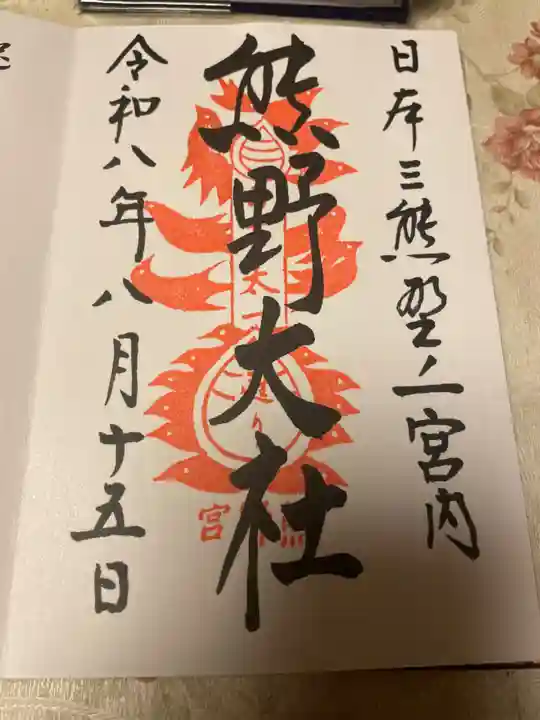 日本三熊野ノ一宮内
熊野大社
令和八年八月十五日